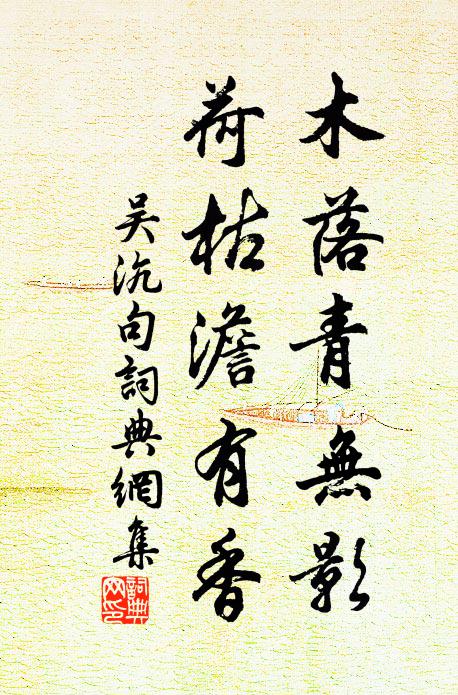 木落青無影
荷枯澹有香
吴沆句詞典網集
詞典网印